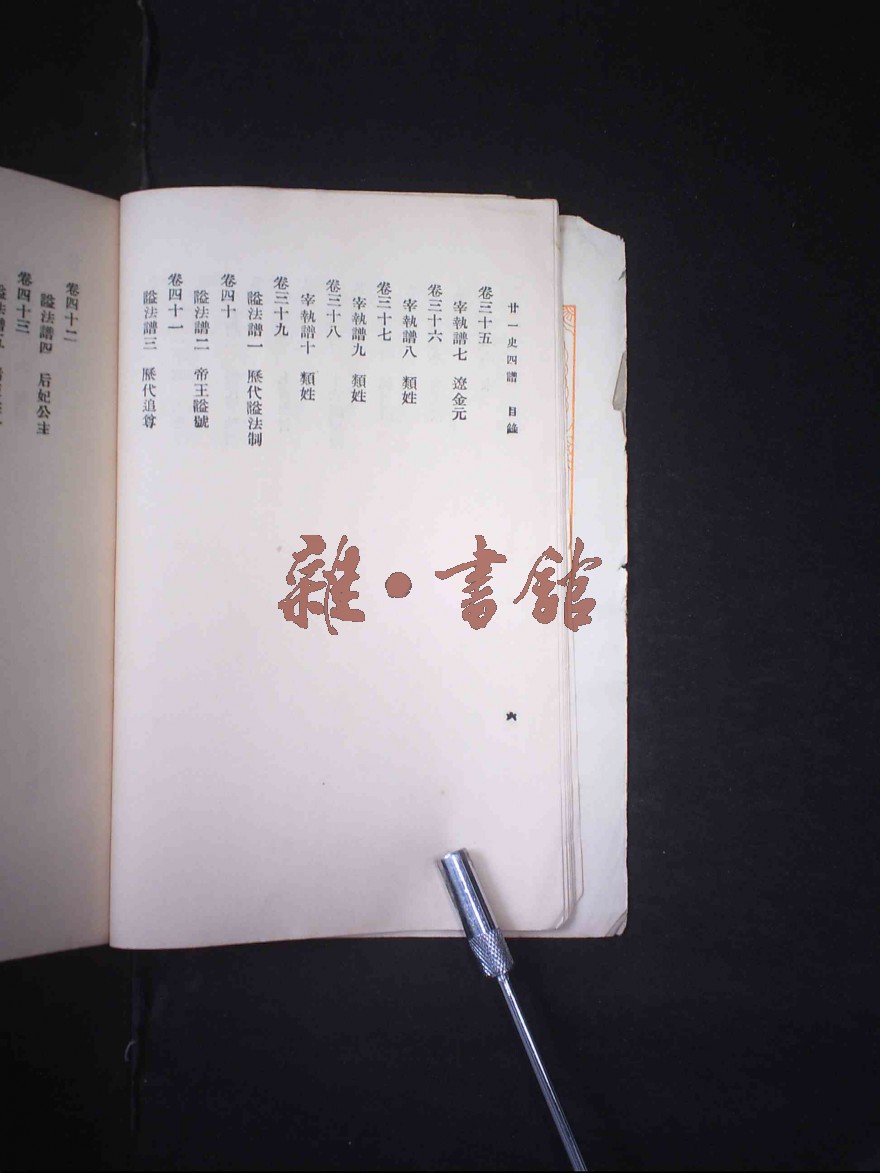 廿一史四譜 目錄
卷三十五
宰執譜七 遼金元
卷三十六
宰執譜八 類姓
卷三十七
宰執譜九 類姓
卷三十八
宰執譜十 類姓
卷三十九
謚法譜一 歷代謚法制
卷四十
謚法譜二 帝王謚號
卷四十一
謚法譜三 歷代追尊
六
卷四十二
謚法譜四 后妃公主
卷四十三
雜·書館